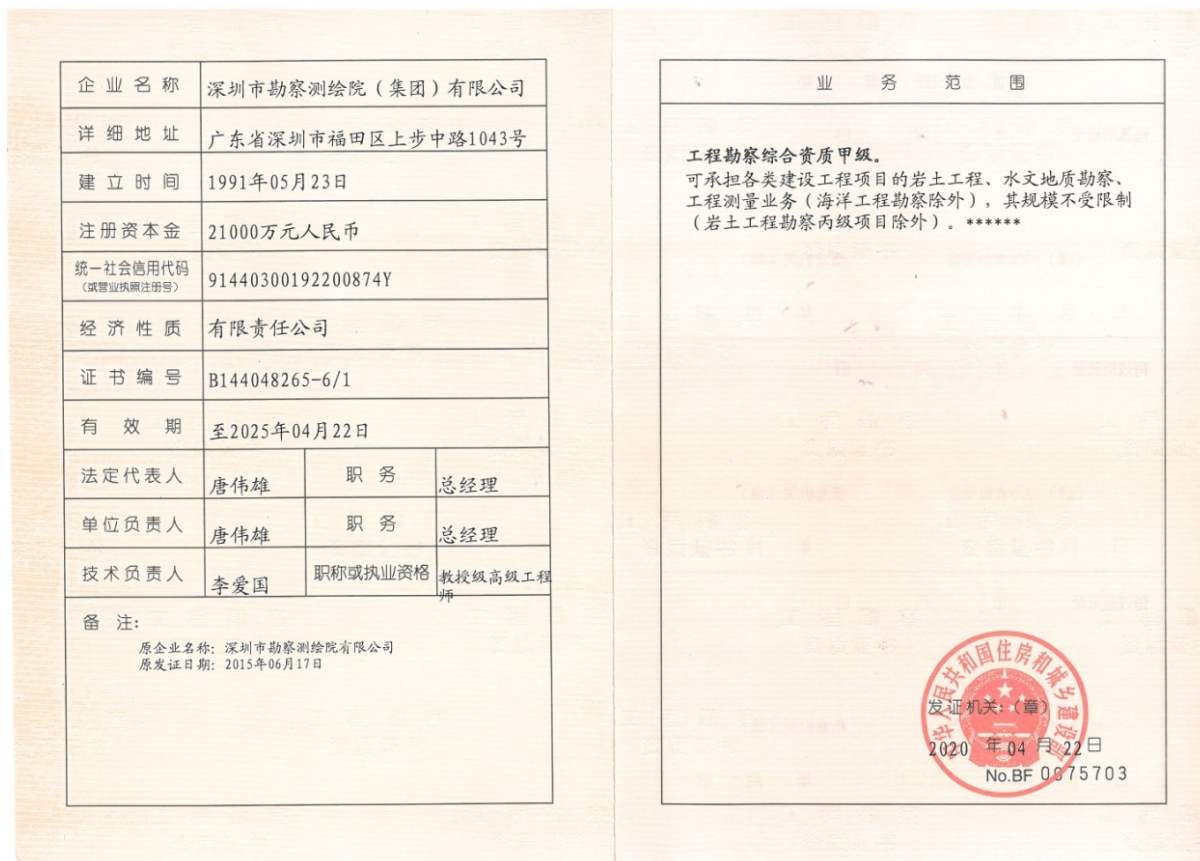 企业名称 深圳市勘察测绘院（集团）有限公司
详细地址 广东省深圳市福田区上步中路1043号
建立时间 1991年05月23日
注册资本金 21000万元人民币
统一社会信用代码
（或营业执照注册号） 91440300192200874Y
经济性质 有限责任公司
证书编号 B144048265-6/1
有效期 至2025年04月22日
法定代表人 唐伟雄 职务 总经理
单位负责人 唐伟雄 职务 总经理
技术负责人 李爱国 职称或执业资格 教授级高级工程
师
备注：
原企业名称：深圳市勘察测绘院有限公司
原发证日期：2015年06月17日
业务范围
工程勘察综合资质甲级。
可承担各类建设工程项目的岩土工程、水文地质勘察、
工程测量业务（海洋工程勘察除外），其规模不受限制
（岩土工程勘察丙级项目除外）。******
中华人民共和国住房和城乡建设部
发证机关：（章）
2020 年 04 月 22日
No.BF 0075703